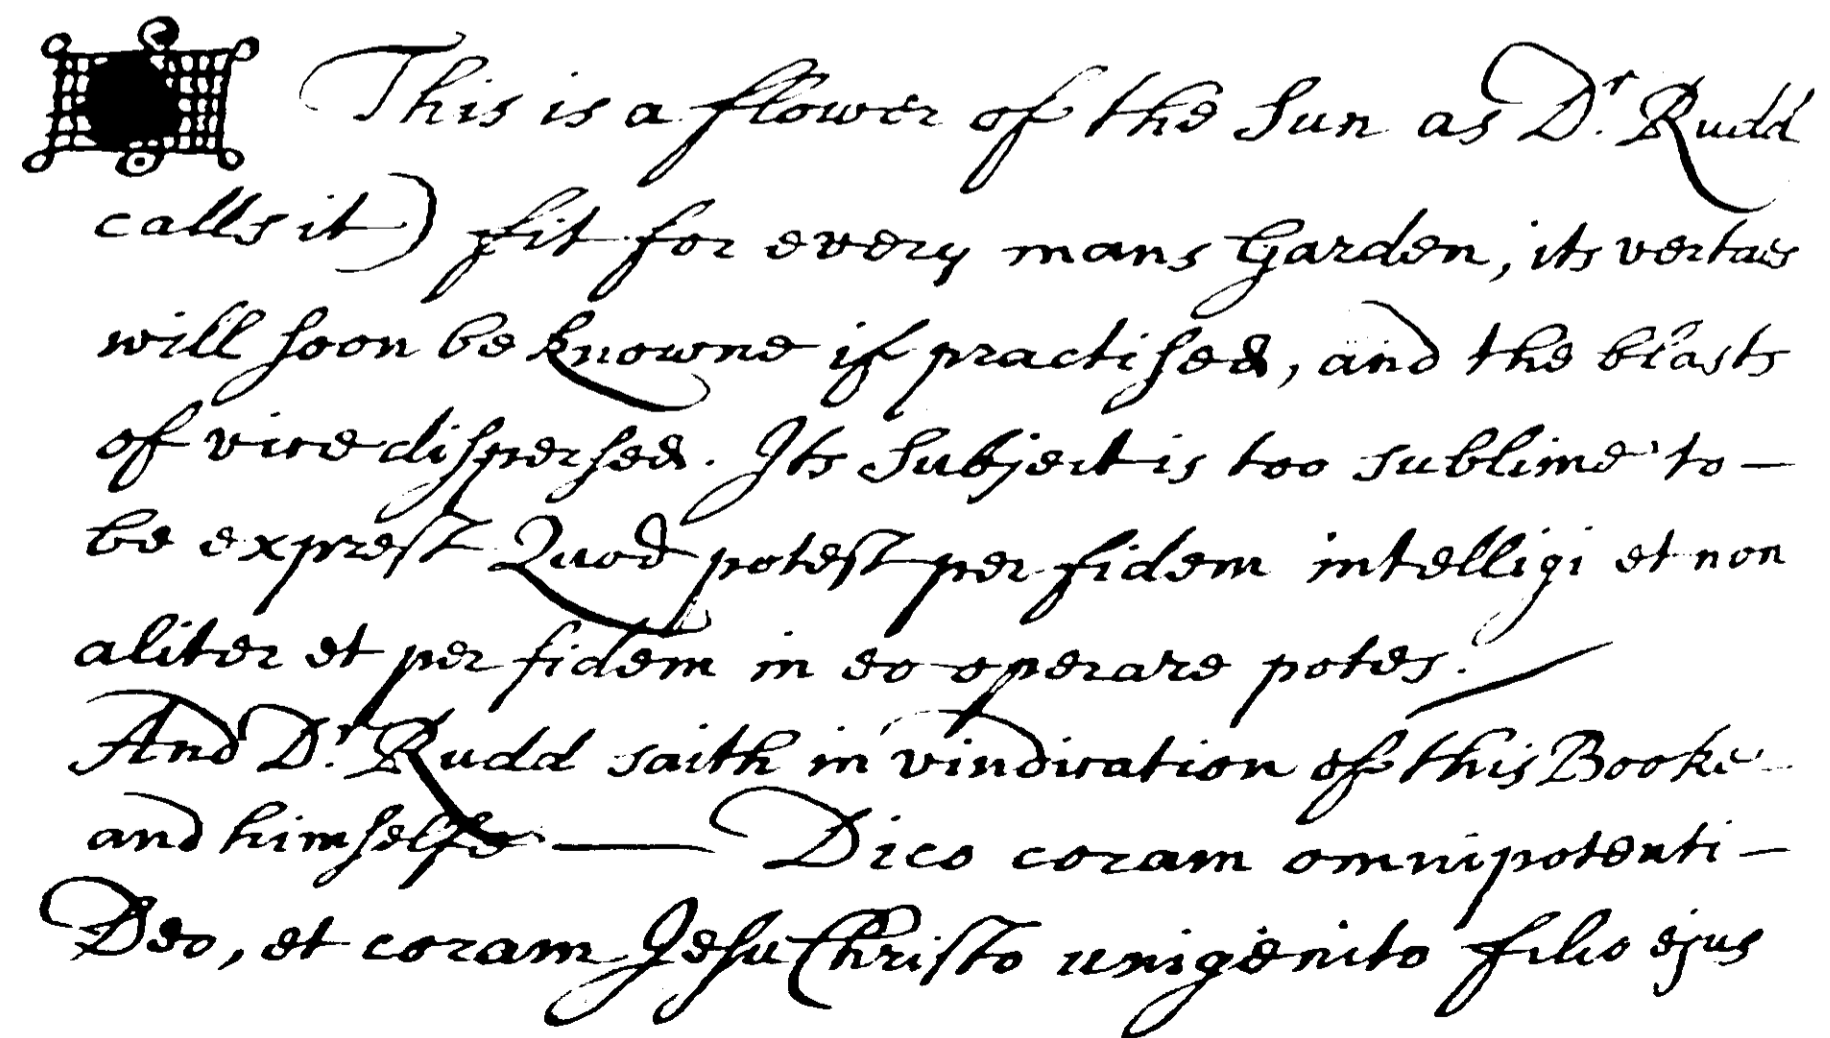 This is a flower of the Sun as Dr. Rudd
calls it) fit for every mans Garden, its vertues
will soon be knowne if practised, and the blasts
of vice dispersed. Its Subject is too sublime to —
be exprest Quod potest per fidem intelligi et non
aliter et per fidem in eo operare potes.
And Dr. Rudd saith in vindication of this Booke
and himselfe — Dico coram omnipotenti —
Deo, et coram Jesu Christo unigenito filio ejus